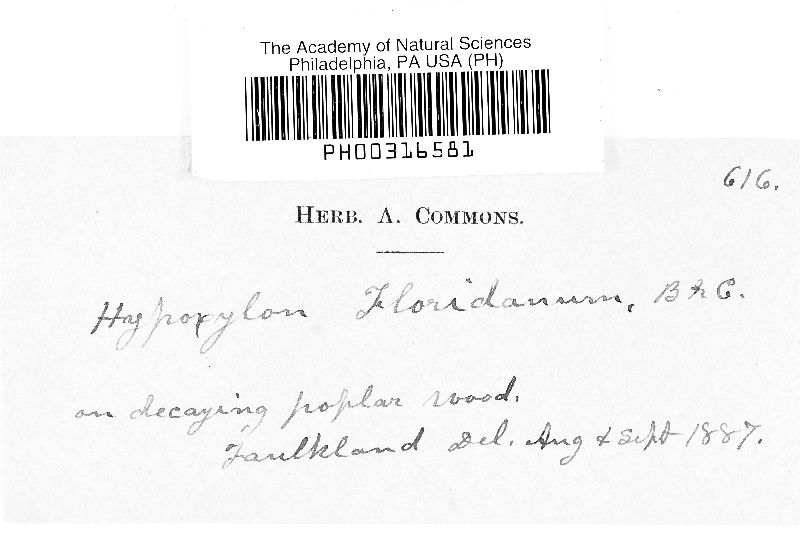 The Academy of Natural Sciences
Philadelphia, PA USA (PH)
PH00316581
616.
HERB. A. COMMONS.
Hypoxylon Floridanum, B & C.
on decaying poplar wood.
Faulkland Del. Aug & Sept 1887.